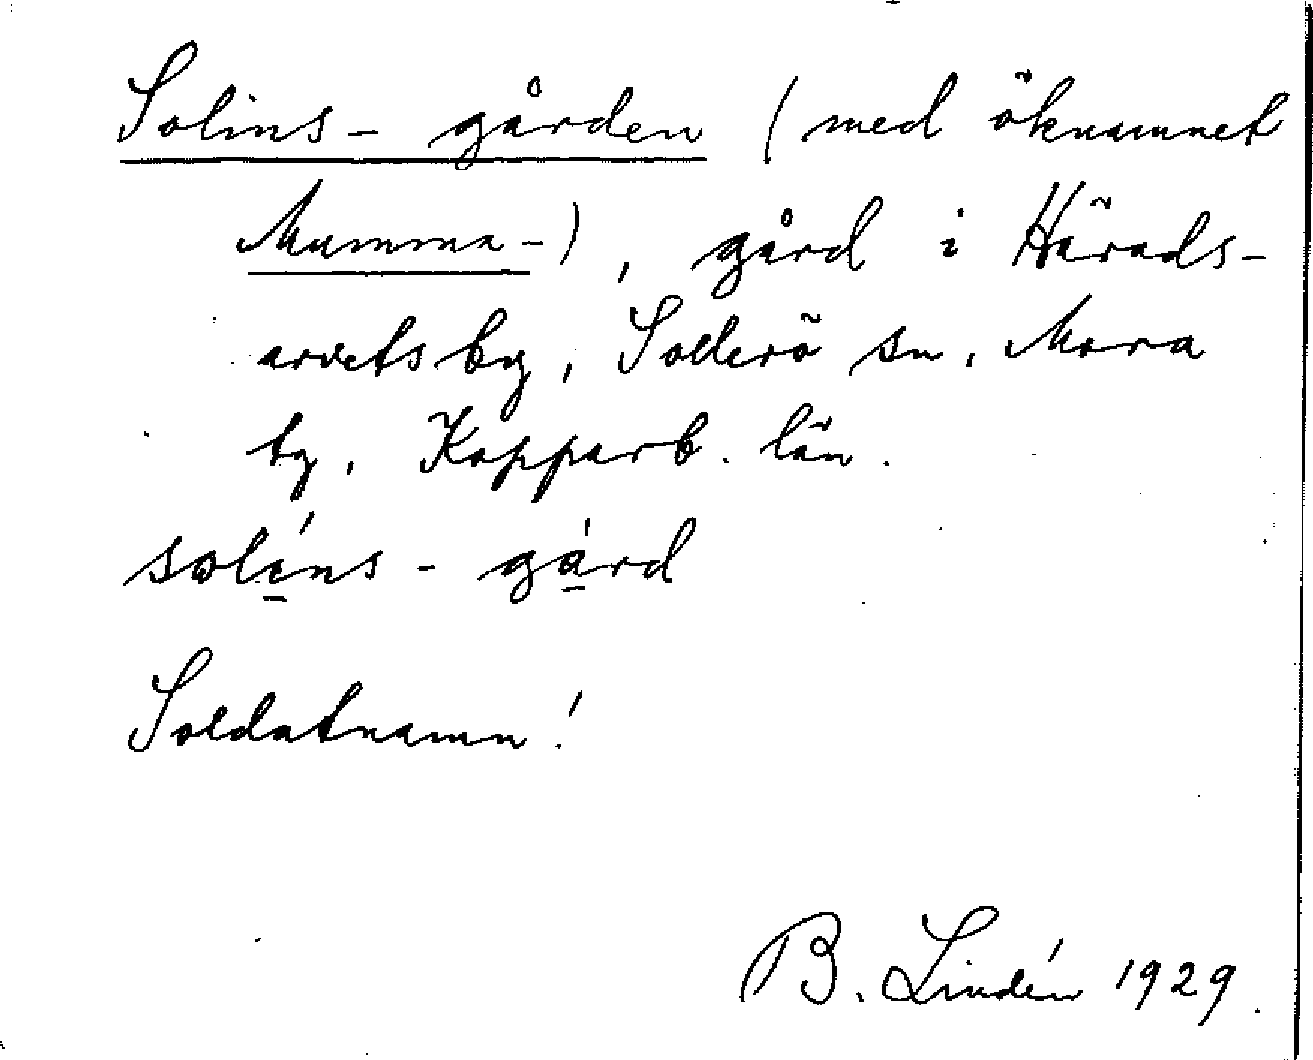 Solins-gården (med öknamnet
Mumma-), gård i Härads-
arvets by, Sollerö sn, Mora
tg, Kopparb. län.
solíns-gárd
Soldatnamn!
B. Lindén 1929.